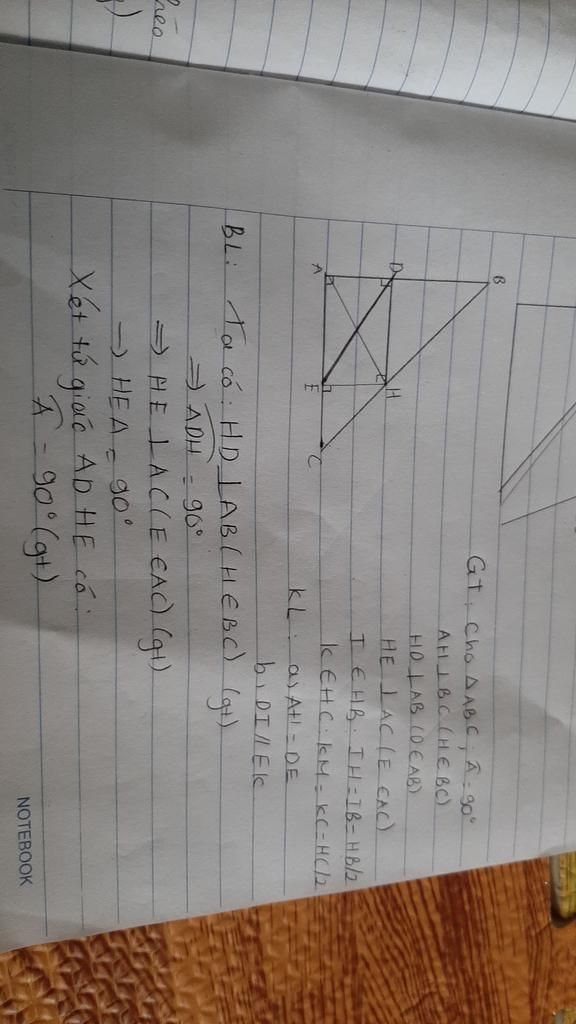 héo
g)
B
D
A
H
E
C
GT: Cho △ABC; Â = 90°
AH ⊥ BC (H ∈ BC)
HD ⊥ AB (D ∈ AB)
HE ⊥ AC (E ∈ AC)
I ∈ HB: IH = IB = HB/2
K ∈ HC: KM = KC = HC/2
KL: a, AH = DE
b, DI // EK
BL: Ta có: HD ⊥ AB (H ∈ BC) (gt)
=> ADH = 90°
=> HE ⊥ AC (E ∈ AC) (gt)
→ HEA = 90°
Xét tứ giác ADHE có:
Â = 90° (gt)
NOTEBOOK